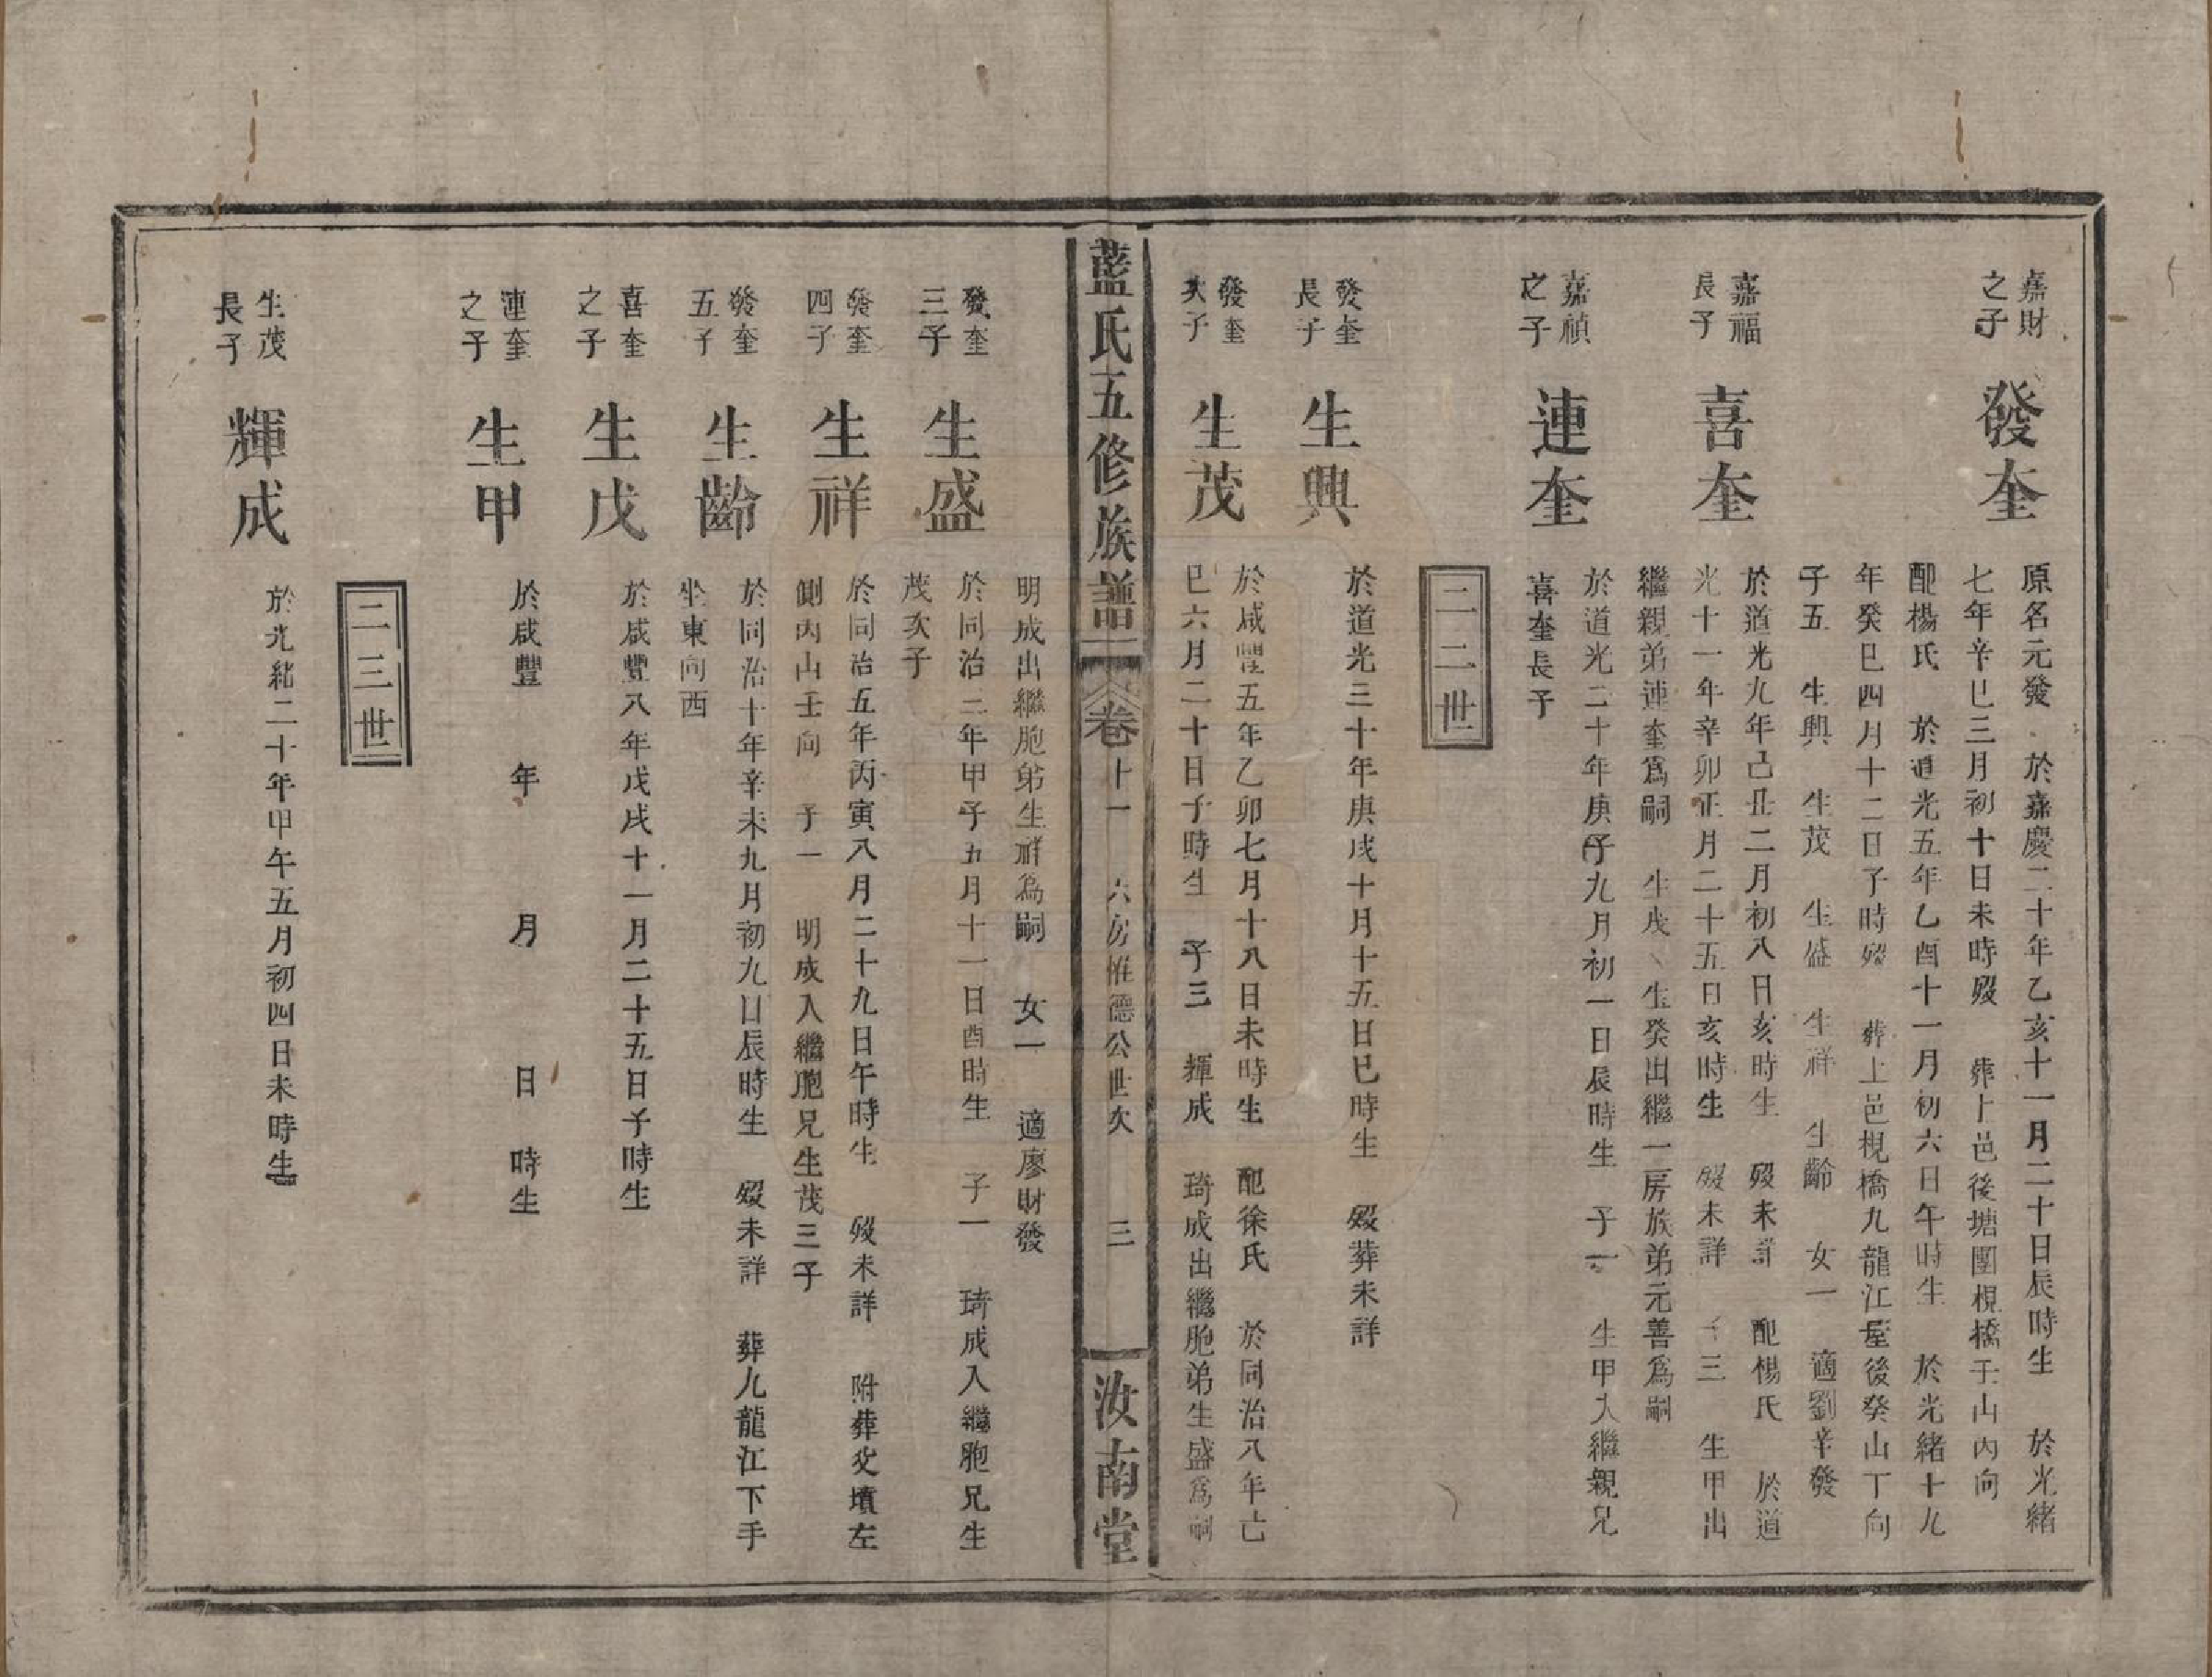 嘉財
之子
發奎
原名元發 於嘉慶二十年乙亥十一月二十日辰時生 於光緒
七年辛巳三月初十日未時歿 葬上邑後塘團梘橋壬山丙向
配楊氏 於道光五年乙酉十一月初六日午時生 於光緒十九
年癸巳四月十二日子時歿 葬上邑梘橋九龍江屋後癸山丁向
子五 生興 生茂 生盛 生祥 生齡 女一 適劉辛發
嘉福
長子
喜奎
於道光九年己丑二月初八日亥時生 歿未詳 配楊氏 於道
光十一年辛卯正月二十五日亥時生 歿未詳 子三 生甲出
繼親弟連奎爲嗣 生戊 生癸出繼一房族弟元善爲嗣
嘉禎
之子
連奎
於道光二十年庚子九月初一日辰時生 子一 生甲入繼親兄
喜奎長子
二二世
發奎
長子
生興
於道光三十年庚戌十月十五日巳時生 歿葬未詳
發奎
次子
生茂
於咸豐五年乙卯七月十八日未時生 配徐氏 於同治八年己
巳六月二十日子時生 子三 輝成 琦成出繼胞弟生盛爲嗣
藍氏五修族譜 卷十一 六房惟德公世次 三 汝南堂
明成出繼胞弟生祥爲嗣 女一 適廖財發
發奎
三子
生盛
於同治三年甲子五月十一日酉時生 子一 琦成入繼胞兄生
茂次子
發奎
四子
生祥
於同治五年丙寅八月二十九日午時生 歿未詳 附葬父墳左
側丙山壬向 子一 明成入繼胞兄生茂三子
發奎
五子
生齡
於同治十年辛未九月初九日辰時生 歿未詳 葬九龍江下手
坐東向西
喜奎
之子
生戊
於咸豐八年戊戌十一月二十五日子時生
連奎
之子
生甲
於咸豐 年 月 日 時生
二三世
生茂
長子
輝成
於光緒二十年甲午五月初四日未時生